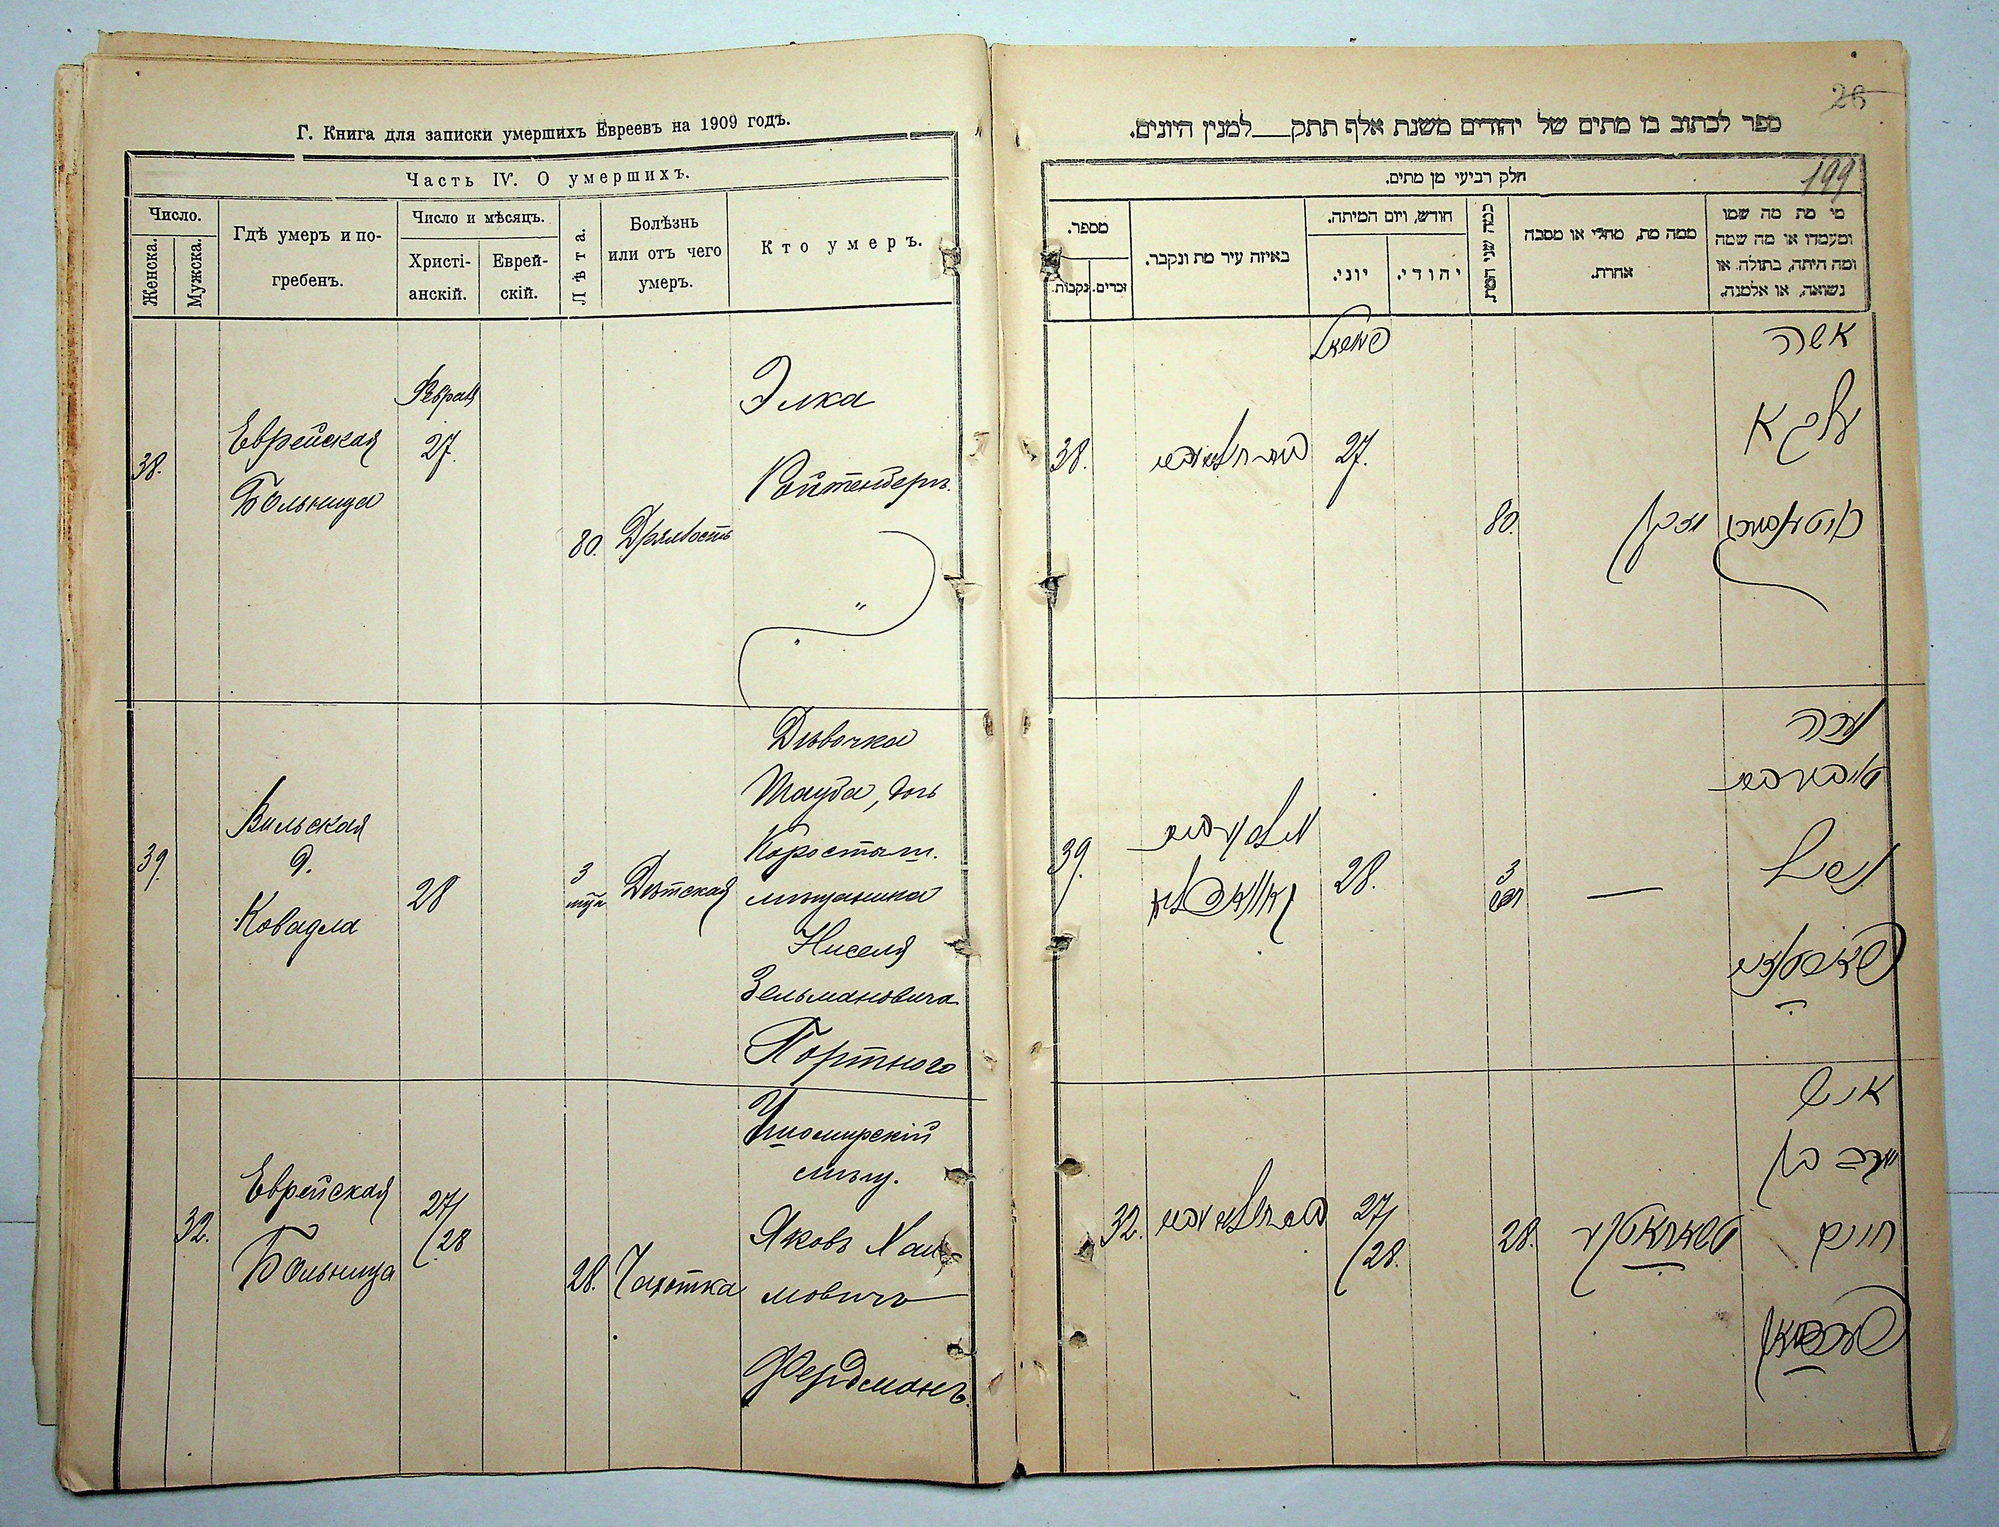 Г. Книга для записки умершихъ Евреевъ на 1909 годъ.
Часть IV. О умершихъ.
Число.
Женска.
Мужска.
Гдѣ умеръ и по-
гребенъ.
Число и мѣсяцъ.
Христі-
анскій.
Еврей-
скій.
Лѣта.
Болѣзнь
или отъ чего
умеръ.
Кто умеръ.
38.
Еврейская
Больница
Февраля
27.
80.
Дряхлость
Элка
Ройтенберг.
39.
Вильская
д.
Ковадла
28
3
Дѣтская
Дѣвочка
Тауба, дочь
Коростыш.
мѣщанина
Ниселя
Зельмановича
Портного
32.
Еврейская
Больница
27/
/28
28.
Чахотка
Житомирскій
мѣщ.
Яковъ Хаи-
мовичъ
Фердманъ.
26
ספר לכתוב בו מתים של יהודים משנת אלף תתק___למנין היונים.
199
חלק רביעי מן מתים.
מספר.
נקבות.
זכרים.
באיזה עיר מת ונקבר.
חודש, ויום המיתה.
יוני.
יהודי.
כמה שני המת
ממה מת, מחלי או מסבה
אחרת.
מי מת מה שמו
ומעמדו או מה שמה
ומה היתה, בתולה או
נשואה, או אלמנה.
38.
27.
80.
זקן
אשה
עלקא
39.
28.
3
—
ילדה
ניסל
32.
27/
/28.
28.
איש
יעקב בן
חיים